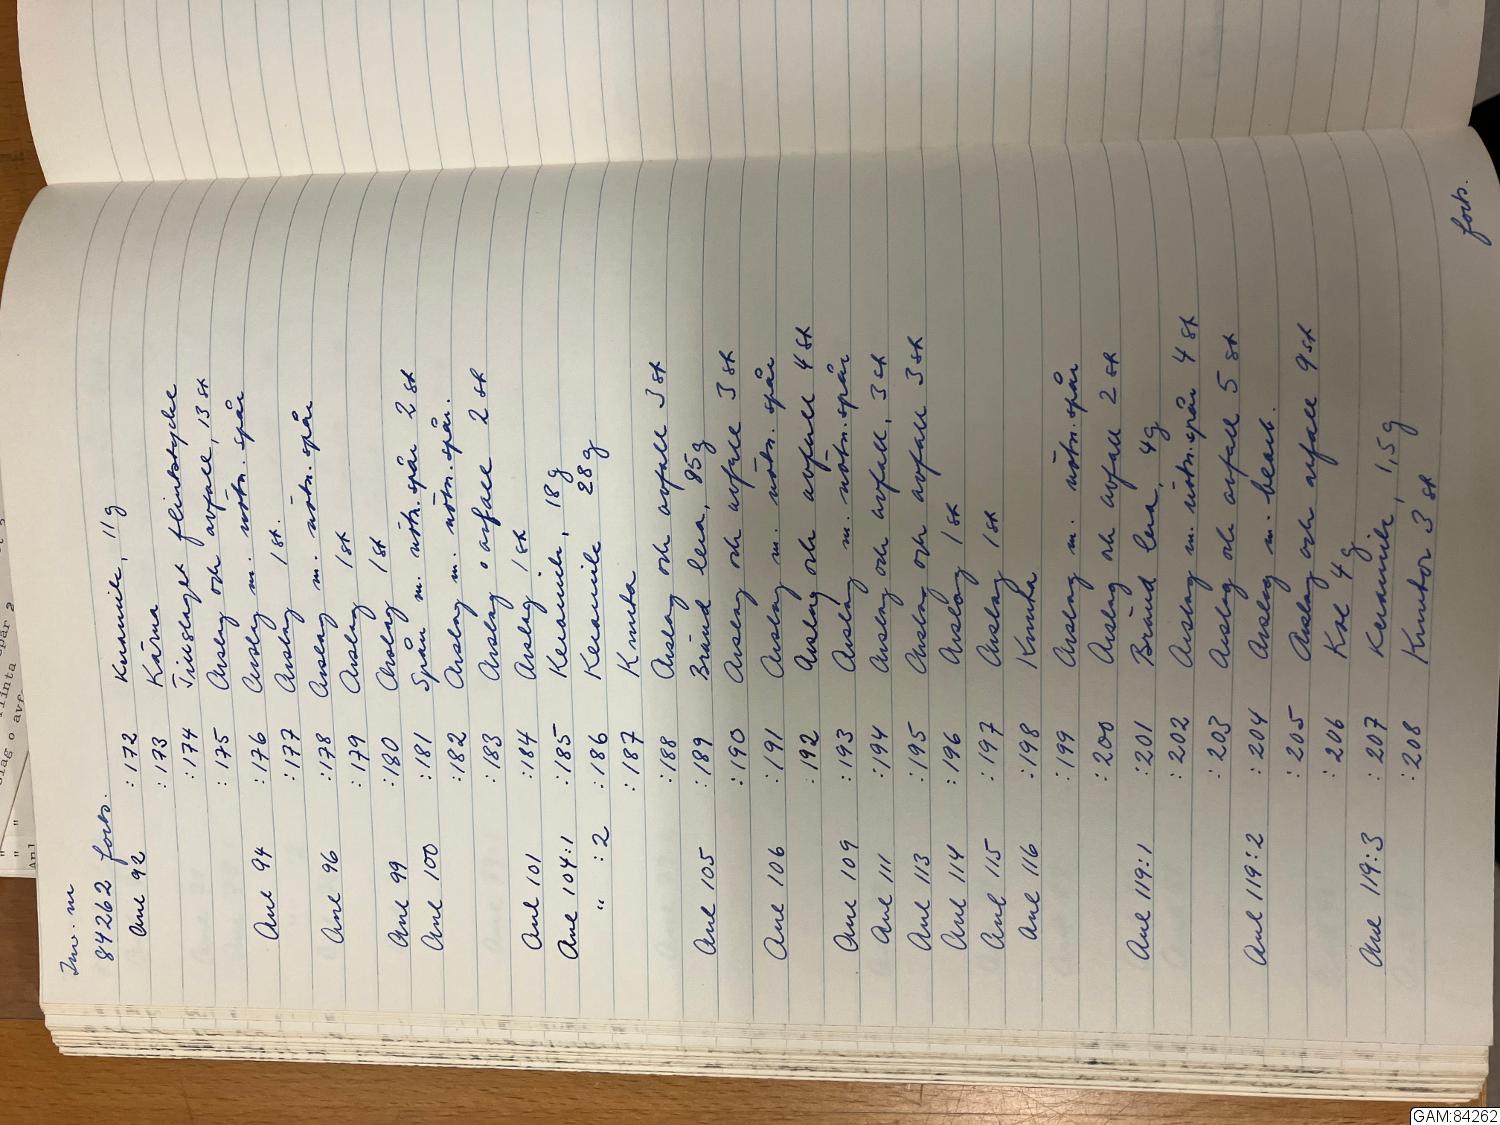 Inv. nr
84262 forts.
Anl 92 :172 Keramik, 11 g
:173 Kärna
:174 Tillslaget flintstycke
:175 Avslag och avfall, 13 st
Anl 94 :176 Avslag m. nötn. spår
:177 Avslag 1 st.
Anl 96 :178 Avslag m. nötn. spår
:179 Avslag 1 st
Anl 99 :180 Avslag 1 st
Anl 100 :181 Spån m. nötn. spår 2 st
:182 Avslag m. nötn. spår.
:183 Avslag o avfall 2 st
Anl 101 :184 Avslag 1 st
Anl 104:1 :185 Keramik, 18 g
" :2 :186 Keramik 28 g
:187 Knacka
:188 Avslag och avfall 3 st
Anl 105 :189 Bränd lera, 85 g
:190 Avslag och avfall 3 st
Anl 106 :191 Avslag m. nötn. spår
:192 Avslag och avfall 4 st
Anl 109 :193 Avslag m. nötn. spår
Anl 111 :194 Avslag och avfall, 3 st
Anl 113 :195 Avslag och avfall 3 st
Anl 114 :196 Avslag 1 st
Anl 115 :197 Avslag 1 st
Anl 116 :198 Knacka
:199 Avslag m. nötn. spår
:200 Avslag och avfall 2 st
Anl 119:1 :201 Bränd lera, 4 g
:202 Avslag m. nötn. spår 4 st
:203 Avslag och avfall 5 st
Anl 119:2 :204 Avslag m. bearb.
:205 Avslag och avfall 9 st
:206 Kol 4 g
Anl 119:3 :207 Keramik, 1,5 g
:208 Knutor 3 st
forts.
GAM:84262